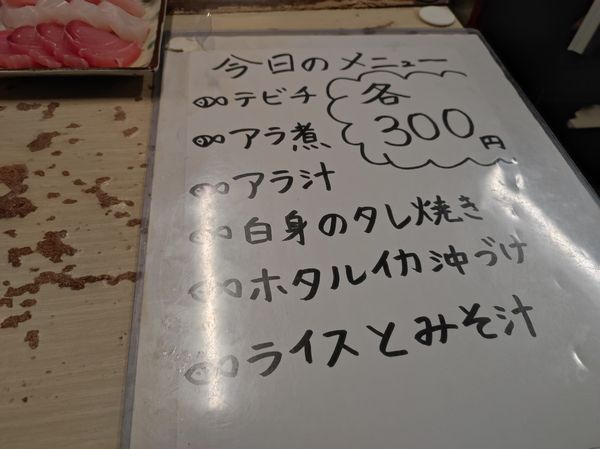 今日のメニュー
テビチ
各
300円
アラ煮
アラ汁
白身のタレ焼き
ホタルイカ沖づけ
ライスとみそ汁